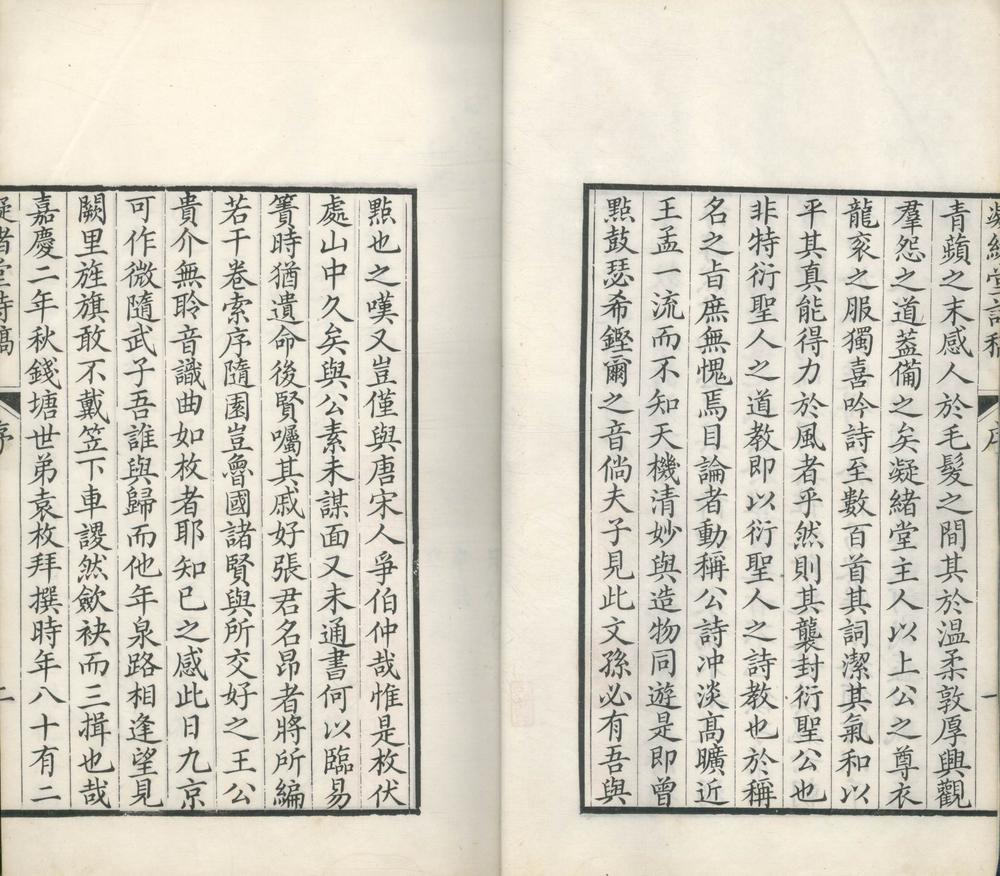 凝緒堂詩稿 序 一
青蘋之末感人於毛髮之間其於温柔敦厚興觀
羣怨之道葢備之矣凝緒堂主人以上公之尊衣
龍衮之服獨喜吟詩至數百首其詞潔其氣和以
平其真能得力於風者乎然則其襲封衍聖公也
非特衍聖人之道教即以衍聖人之詩教也於稱
名之㫖庶無愧焉目論者動稱公詩冲淡髙曠近
王孟一流而不知天機清妙與造物同遊是即曾
點鼓瑟希鏗爾之音倘夫子見此文孫必有吾與
點也之嘆又豈僅與唐宋人爭伯仲哉惟是枚伏
處山中久矣與公素未謀面又未通書何以臨易
簀時猶遺命後賢囑其戚好張君名昂者將所編
若干卷索序隨園豈魯國諸賢與所交好之王公
貴介無聆音識曲如枚者耶知已之感此日九京
可作微隨武子吾誰與歸而他年泉路相逢望見
闕里旌旗敢不戴笠下車謖然歛袂而三揖也哉
嘉慶二年秋錢塘世弟袁枚拜撰時年八十有二
凝緒堂詩稿 序 二